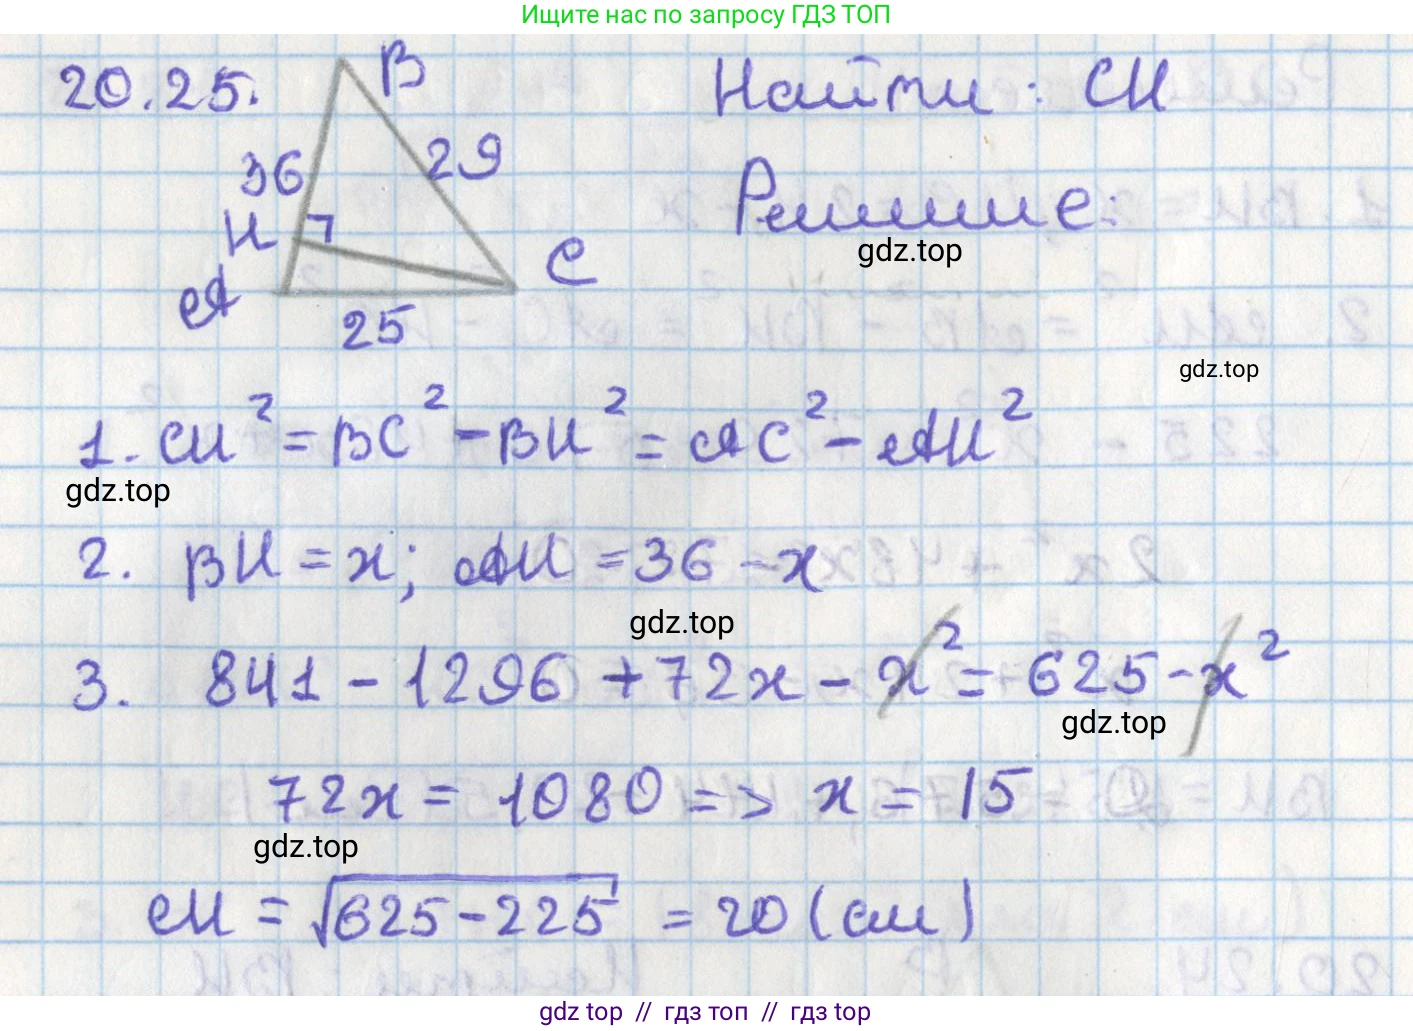 Ищите нас по запросу ГДЗ ТОП
20.25.
B
36
29
H
A
C
25
Найти: CH
Решение:
gdz.top
gdz.top
1. CH² = BC² - BH² = AC² - AH²
gdz.top
2. BH = x; AH = 36 - x
gdz.top
3. 841 - 1296 + 72x - x² = 625 - x²
gdz.top
72x = 1080 => x = 15
gdz.top
CH = √625-225 = 20 (см)
gdz top // гдз топ // gdz top